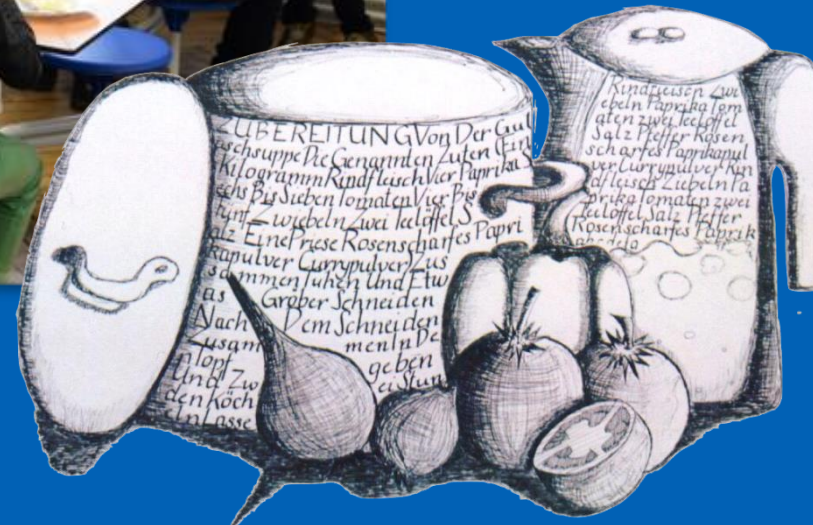 ZUBEREITUNG Von Der Gul
aschsuppe Die Genannten Zuten (Ein
Kilogramm Rindfleisch Vier Paprika S
echs Bis Sieben Tomaten Vier Bis
Fünf Zwiebeln Zwei Teelöffel S
alz Eine Priese Rosenscharfes Papri
kapulver Currypulver) Zus
ammen
Und Etw
as Gröber Schneiden
Nach Dem Schneiden
Zusam men In De
n Topf geben
Und Zw ei Stun
den Köch
eln Lasse
Rindfleisch Zwi
ebeln Paprika Tom
aten zwei Teelöffel
Salz Pfeffer Rosen
scharfes Paprikapul
ver Currypulver Rin
dfleisch Ziebeln Pa
prika Tomaten zwei
Teelöffel Salz Pfeffer
Rosenscharfes Paprik